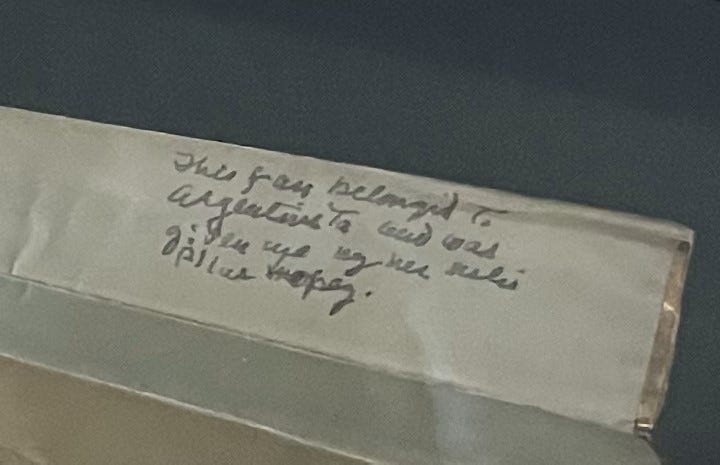 This fan belonged to
Argentinita and was
given me by her
Pilar Lopez.